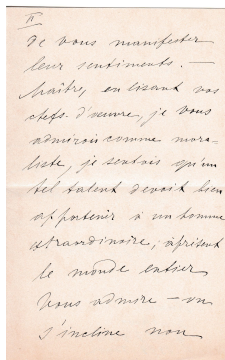 II
de vous manifester
leur sentiments. —
Maître, en lisant vos
chefs d'œuvre, je vous
admirais comme mora-
liste, je sentais qu'un
tel talent devait bien
appartenir à un homme
extraordinaire; à présent
le monde entier
vous admire — on
s'incline non